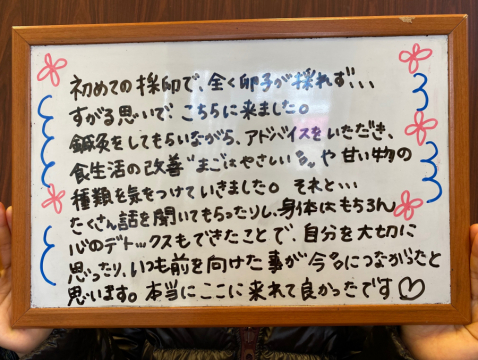 初めての採卵で、全く卵子が採れず、、、
すがる思いで、こちらに来ました。
鍼灸をしてもらいながら、アドバイスをいただき、
食生活の改善“まごはやさしい”や甘い物の
種類を気をつけていきました。それと、、、
たくさん話を聞いてもらったりし、身体はもちろん
心のデトックスもできたことで、自分を大切に
思ったり、いつも前を向けた事が今に つながったと
思います。本当にここに来れて良かったです♡